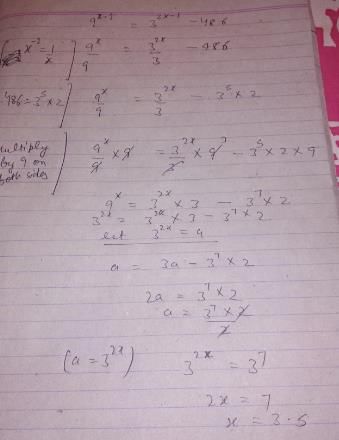 9^(x-1) = 3^(2x-1) - 486
x^-1 = 1/x ] 9^x/9 = 3^2x/3 - 486
486 = 3^5 × 2 ] 9^x/9 = 3^2x/3 - 3^5 × 2
multiply by 9 on both sides ] 9^x/9 × 9 = 3^2x/3 × 9^3 - 3^5 × 2 × 9
9^x = 3^2x × 3 - 3^7 × 2
3^2x = 3^2x × 3 - 3^7 × 2
let 3^2x = a
a = 3a - 3^7 × 2
2a = 3^7 × 2
a = 3^7 × 2/2
(a = 3^2x) 3^2x = 3^7
2x = 7
x = 3.5